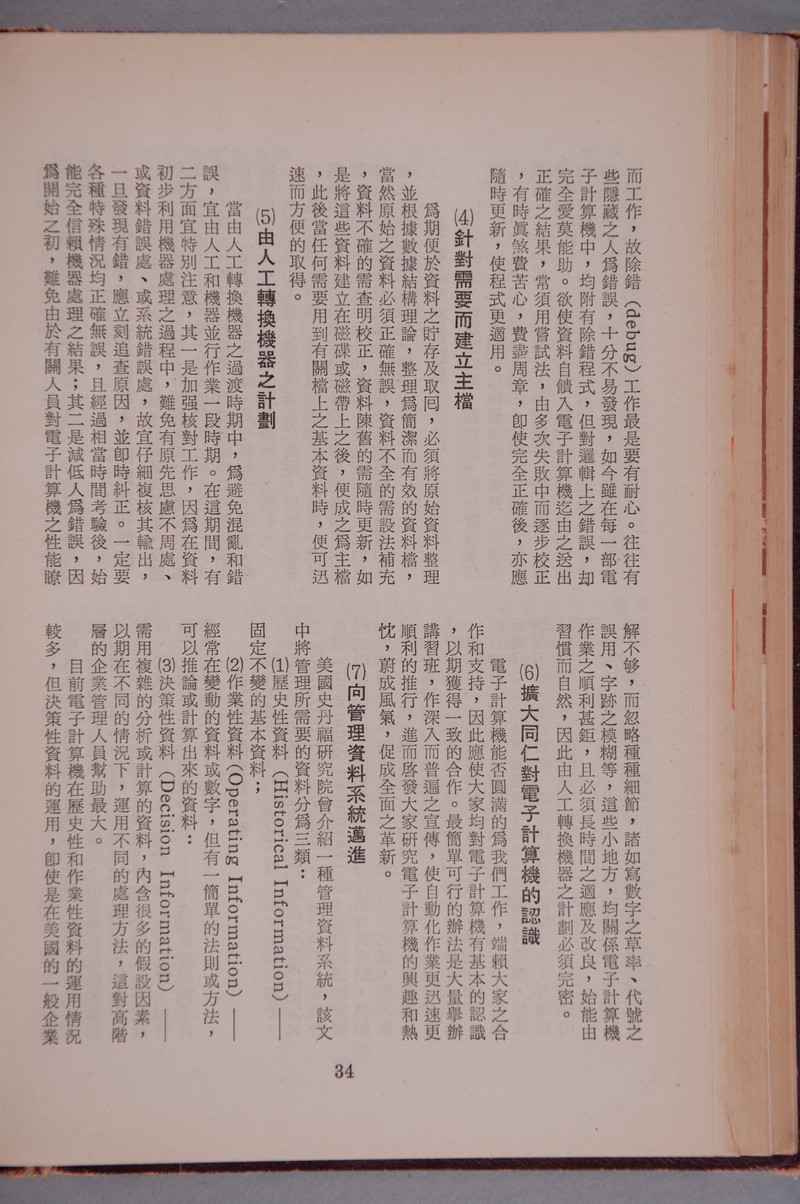 而工作，故除錯（debug）工作最是要有耐心。往往有
些隱藏之人爲錯誤，十分不易發現，如今雖在每一部電
子計算機中，均附有除錯程式，但對邏輯上之錯誤，却
完全愛莫能助。欲使資料自饋入電子計算機迄由之送出
正確之結果，常須用嘗試法，由多次失敗中而逐步校正
，有時眞煞費苦心，費盡周章，卽使完全正確後，亦應
隨時更新，使程式更適用。
⑷針對需要而建立主檔
爲期便於資料之貯存及取囘，必須將原始資料整理
，並根據數據結構理論，整理爲簡潔而有效的資料檔，
當然原始之資料必須正確無誤，資料不全的需設法補充
，資料不確的需查明校正，資料陳舊的需隨時更新，如
是將這些資料建立在磁碟或磁帶上之後，便成之爲主檔
，此後當任何需要用到有關檔上之基本資料時，便可迅
速而方便的取得。
⑸由人工轉換機器之計劃
當由人工轉換機器之過渡時期中，爲避免混亂和錯
誤，宜由人工和機器並行作業一段時期。在這期間，有
二方面宜特別注意，其一是加强核對工作，因爲在資料
初步利用機器處理之過程中，難免有原先思慮不周處、
或資料錯誤處、或系統錯誤處，故宜仔細複核其輸出，
一旦發現有錯，應立刻追查原因，並卽時糾正。一定要
各種特殊情況均正確無誤，且經過相當時間考驗後，始
能完全信賴機器處理之結果；其二是減低人爲錯誤，因
爲開始之初，難免由於有關人員對電子計算機之性能瞭
解不够，而忽略種種細節，諸如寫數字之草率、代號之
誤用、字跡之模糊等，這些小地方，均關係電子計算機
作業之順利甚鉅，且必須長時間之適應及改良，始能由
習慣而自然，因此由人工轉換機器之計劃必須完密。
⑹擴大同仁對電子計算機的認識
電子計算機能否圓滿的爲我們工作，端賴大家之合
作和支持，因此應使大家均對電子計算機有基本的認識
，以期獲得一致的合作。最簡單可行的辦法是大量舉辦
講習班，作深入而普遍之宣傳，使自動化作業更迅速更
順利的推行，進而啓發大家研究電子計算機的興趣和熱
忱，蔚成風氣，促成全面之革新。
⑺向管理資料系統邁進
美國史丹福研究院曾介紹一種管理資料系統，該文
中將管理所需要的資料分爲三類：
⑴歷史性資料（Historical Information）——
固定不變的基本資料；
⑵作業性資料（Operating Information）——
經常在變動的資料或數字，但有一簡單的法則或方法，
可以推論或計算出來的資料：
⑶決策性資料（Decision Information）——
需用複雜的分析或計算的資料，內含很多的假設因素，
以期在不同的情況下，運用不同的處理方法，這對高階
層的企業管理人員幫助最大。
目前電子計算機在歷史性和作業性資料的運用情況
較多，但決策性資料的運用，卽使是在美國的一般企業
34